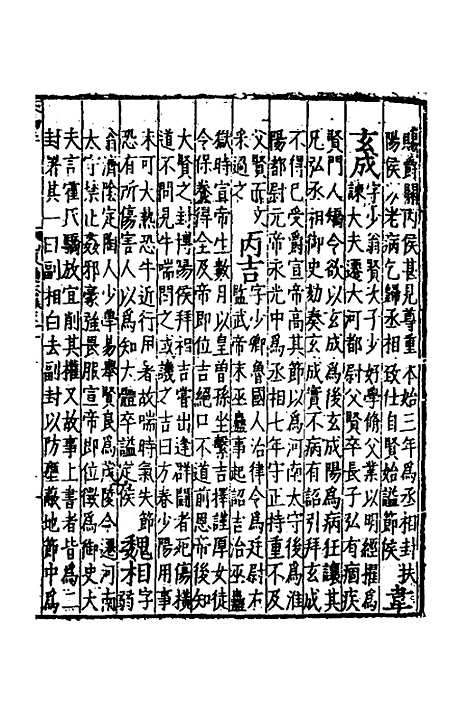 賜爵關內侯甚見尊重本始三年為丞相封扶
陽侯以老病乞歸丞相致仕自賢始謚節侯 韋
玄成 字少翁賢次子少好學修父業以明經擢為
諫大夫遷大河都尉父賢卒長子弘有痼疾
賢門人矯令欲以玄成為後玄成陽為病狂讓其
兄弘丞相御史劾奏玄成實不病有詔引拜玄成
不得已受爵宣帝高其節以為河南太守後為淮
陽都尉元帝永光中為丞相七年守正持重不及
父賢而文采過之 丙吉 字少卿魯國人治律令為廷尉右
監武帝末巫蠱事起詔吉治巫蠱
獄時宣帝生數月以皇曾孫坐繫吉擇謹厚女徒
令保養得全及帝即位吉絕口不道前恩帝後知
大賢之封博陽侯拜相吉嘗出逢群鬪者死傷橫
道不問見牛喘問之或譏之吉曰方春少陽用事
未可大熱恐牛近行用暑故喘時氣失節
恐有所傷害人以為知大體卒謚定侯 魏相 字弱
翁濟陰定陶人少學易舉賢良為茂陵令遷河南
太守禁止姦邪豪強畏服宣帝即位徵為御史大
夫言霍氏驕放宜削其權又故事上書者皆為二
封署其一曰副相白去副封以防壅蔽地節中為